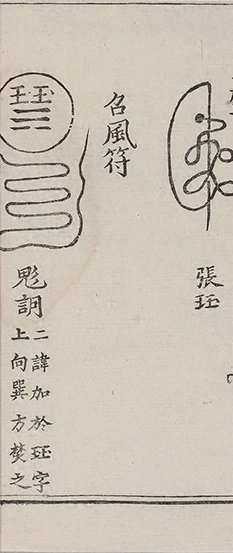 張珏
召風符
二諱加於珏字
上向巽方焚之